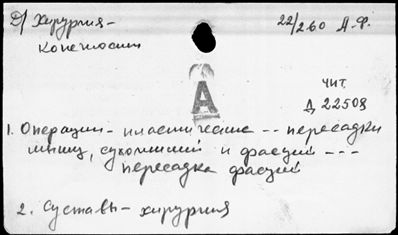 Д/ Хирургия -
конечности
22/260 А.Ф.
А
чит.
Д 22508
1. Операции - пластические -- пересадки
мышц, сухожилий и фасций ---
пересадка фасций
2. Суставы - хирургия